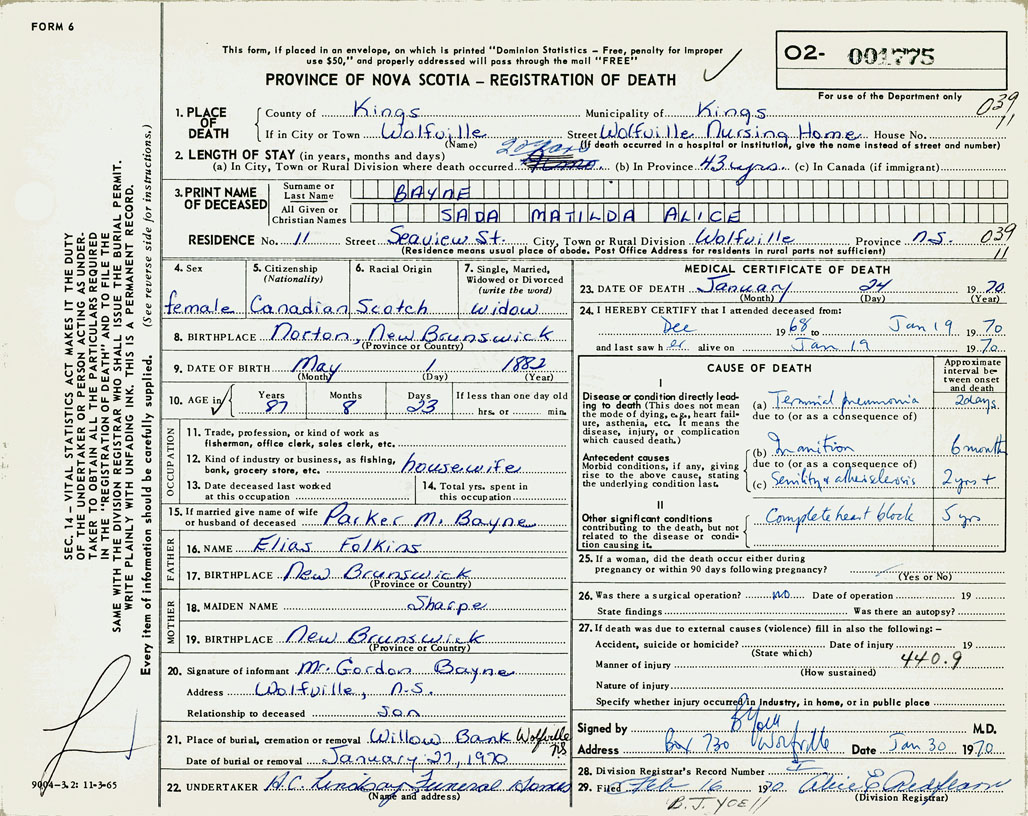 FORM 6
This form, if placed in an envelope, on which is printed "Dominion Statistics – Free, penalty for improper
use $50," and properly addressed will pass through the mail "FREE"
PROVINCE OF NOVA SCOTIA – REGISTRATION OF DEATH
O2- 001775
For use of the Department only
039
11
1. PLACE OF DEATH
County of Kings Municipality of Kings
If in City or Town Wolfville Street Wolfville Nursing Home House No.
(Name) (If death occurred in a hospital or institution, give the name instead of street and number)
2. LENGTH OF STAY (in years, months and days)
(a) In City, Town or Rural Division where death occurred (b) In Province 43 yrs. (c) In Canada (if immigrant)
3. PRINT NAME OF DECEASED
Surname or Last Name BAYNE
All Given or Christian Names SADA MATILDA ALICE
RESIDENCE No. 11 Street Seaview St. City, Town or Rural Division Wolfville Province N.S.
(Residence means usual place of abode. Post Office Address for residents in rural parts not sufficient)
039
11
4. Sex female
5. Citizenship (Nationality) Canadian
6. Racial Origin Scotch
7. Single, Married, Widowed or Divorced (write the word) widow
8. BIRTHPLACE Norton, New Brunswick
(Province or Country)
9. DATE OF BIRTH May 1 1882
(Month) (Day) (Year)
10. AGE in Years 87 Months 8 Days 23 If less than one day old
hrs. or min.
OCCUPATION
11. Trade, profession, or kind of work as
fisherman, office clerk, sales clerk, etc.
12. Kind of industry or business, as fishing,
bank, grocery store, etc. housewife
13. Date deceased last worked
at this occupation
14. Total yrs. spent in
this occupation
15. If married give name of wife
or husband of deceased Parker M. Bayne
FATHER
16. NAME Elias Folkins
17. BIRTHPLACE New Brunswick
(Province or Country)
MOTHER
18. MAIDEN NAME Sharpe
19. BIRTHPLACE New Brunswick
(Province or Country)
20. Signature of informant Mr. Gordon Bayne
Address Wolfville, N.S.
Relationship to deceased son
21. Place of burial, cremation or removal Willow Bank Wolfville N.S.
Date of burial or removal January 27, 1970
22. UNDERTAKER H.C. Lindsay Funeral Homes
(Name and address)
MEDICAL CERTIFICATE OF DEATH
23. DATE OF DEATH January 24 1970
(Month) (Day) (Year)
24. I HEREBY CERTIFY that I attended deceased from:
Dec 1968 to Jan 19 1970
and last saw her alive on Jan 19 1970
CAUSE OF DEATH
Approximate interval between onset and death
I
Disease or condition directly leading to death (This does not mean the mode of dying, e.g., heart failure, asthenia, etc. It means the disease, injury, or complication which caused death.)
(a) Terminal pneumonia 2 days
due to (or as a consequence of)
Antecedent causes
Morbid conditions, if any, giving rise to the above cause, stating the underlying condition last.
(b) Inanition 6 month
due to (or as a consequence of)
(c) Senility & 2 yrs +
II
Other significant conditions contributing to the death, but not related to the disease or condition causing it.
Complete heart block 5 yrs
25. If a woman, did the death occur either during
pregnancy or within 90 days following pregnancy?
(Yes or No)
26. Was there a surgical operation? no Date of operation 19
State findings Was there an autopsy?
27. If death was due to external causes (violence) fill in also the following: –
Accident, suicide or homicide? Date of injury 19
(State which)
Manner of injury 440.9
(How sustained)
Nature of injury
Specify whether injury occurred in industry, in home, or in public place
Signed by B Yoell M.D.
Address Box 730 Wolfville Date Jan 30 1970
28. Division Registrar's Record Number
29. Filed Feb 16 1970 Alice E
(Division Registrar)
B. J. YOELL
SEC. 14 – VITAL STATISTICS ACT MAKES IT THE DUTY
OF THE UNDERTAKER OR PERSON ACTING AS UNDER-
TAKER TO OBTAIN ALL THE PARTICULARS REQUIRED
IN THE "REGISTRATION OF DEATH" AND TO FILE THE
SAME WITH THE DIVISION REGISTRAR WHO SHALL ISSUE THE BURIAL PERMIT.
WRITE PLAINLY WITH UNFADING INK. THIS IS A PERMANENT RECORD.
Every item of information should be carefully supplied. (See reverse side for instructions.)
9004-3.2: 11-3-65